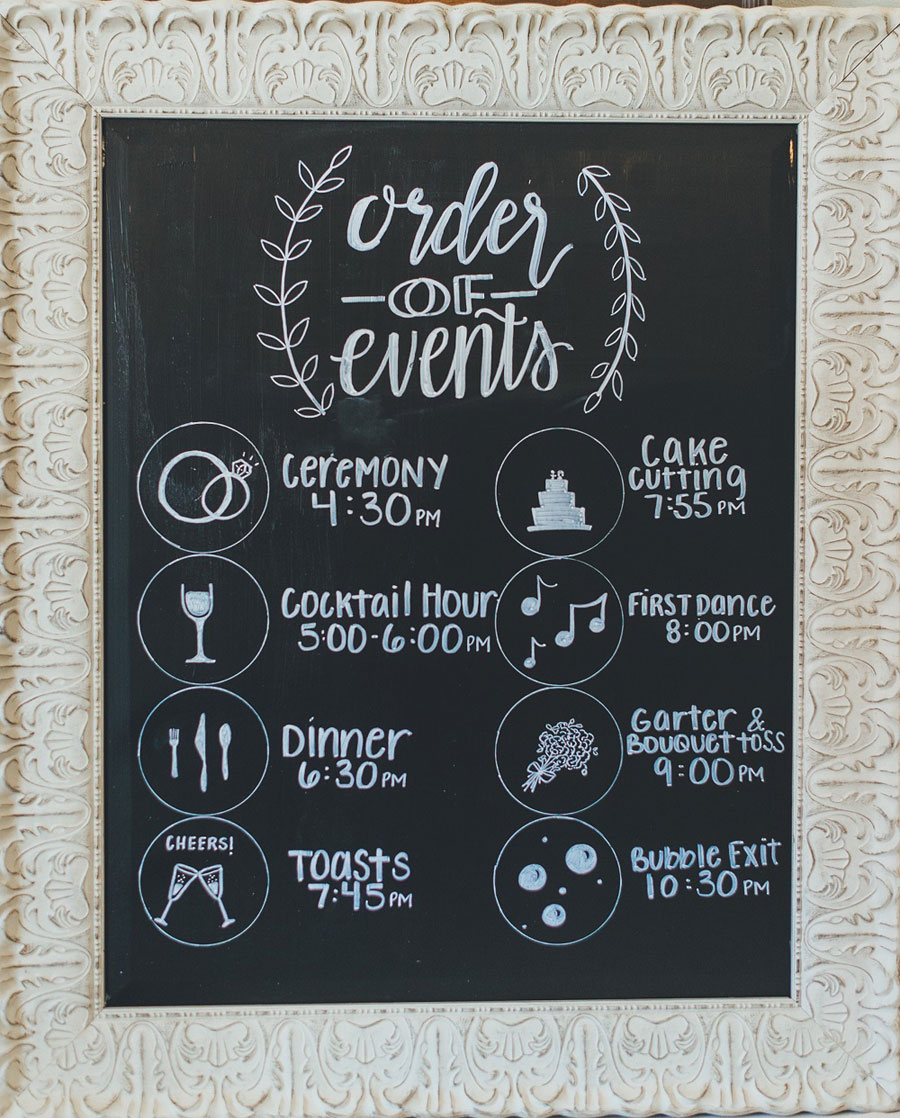 order
OF
events
CEREMONY
4:30 PM
COCKTAIL HOUR
5:00-6:00 PM
DINNER
6:30 PM
CHEERS!
TOASTS
7:45 PM
CAKE
CUTTING
7:55 PM
FIRST DANCE
8:00 PM
GARTER &
BOUQUET TOSS
9:00 PM
BUBBLE EXIT
10:30 PM